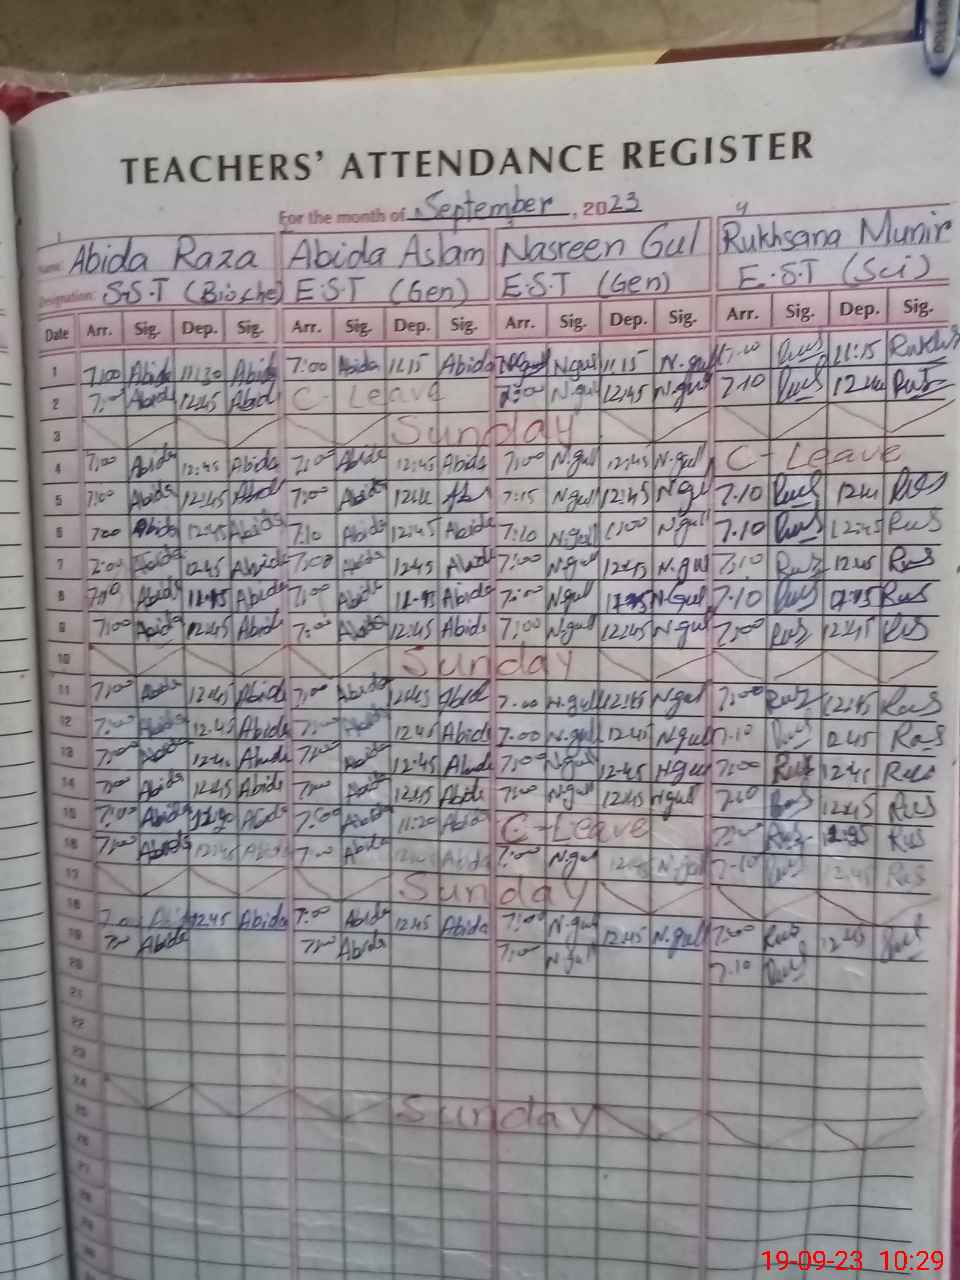 DOLLAR
TEACHERS' ATTENDANCE REGISTER
For the month of September, 2023
1 3 4
Name: Abida Raza Abida Aslam Nasreen Gul Rukhsana Munir
Designation: S.S.T (Bio che) E.S.T (Gen) E.S.T (Gen) E.S.T (Sci)
Date Arr. Sig. Dep. Sig. Arr. Sig. Dep. Sig. Arr. Sig. Dep. Sig. Arr. Sig. Dep. Sig.
1 7:00 Abida 11:30 Abida 7:00 Abida 11:15 Abida N.gul 11:15 N.gul 7:00 Rus 11:15 Rukhs
2 7:00 Abida 12:45 Abida C-Leave 7:00 N.gul 12:45 N.gul 7:10 Rus Rus
3 Sunday
4 7:00 Abida 12:45 Abida 7:00 Abida 12:45 Abida 7:00 N.gul 12:45 N.gul C-Leave
5 7:00 Abida 12:45 Abida 7:00 Abida 7:15 N.gul 12:45 N.gul 7.10 Rus Rus
6 7:00 Abida 12:45 Abida 7:10 Abida 12:45 Abida 7:10 N.gul N.gul 7.10 Rus 12:45 Rus
7 7:00 Abida 12:45 Abida 7:00 Abida 12:45 Abida 7:00 N.gul 12:45 N.gul 7:10 Rus 12:45 Rus
8 7:00 Abida Abida 7:00 Abida Abida 7:00 N.gul N.gul 7.10 Rus Rus
9 7:00 Abida 12:45 Abida 7:00 Abida 12:45 Abida 7:00 N.gul 12:45 N.gul 7:00 Rus 12:45 Rus
10 Sunday
11 7:00 Abida 12:45 Abida 7:00 Abida 12:45 Abida 7.00 N.gul 12:45 N.gul 7:00 Rus 12:45 Rus
12 7:00 Abida 12:45 Abida 7:00 Abida 12:45 Abida 7:00 N.gul 12:45 N.gul 7:10 Rus 12:45 Rus
13 7:00 Abida Abida 7:00 Abida 12:45 Abida 7:00 N.gul 12:45 N.gul 7:00 Rus 12:45 Rus
14 7:00 Abida 12:45 Abida 7:00 Abida 12:45 Abida 7:00 N.gul 12:45 N.gul 7:10 Rus 12:45 Rus
15 7:00 Abida Abida 7:00 Abida 11:20 Abida C-Leave 7:00 Rus Rus
16 7:00 Abida 12:45 Abida 7:00 Abida Abida 7:00 N.gul 12:45 N.gul 7:10 Rus 12:45 Rus
17 Sunday
18 7:00 Abida 12:45 Abida 7:00 Abida 12:45 Abida 7:00 N.gul 12:45 N.gul 7:00 Rus 12:45 Rus
19 7:00 Abida 7:00 Abida 7:00 N.gul 7.10 Rus
20
21
22
23
24 Sunday
25
26
27
28
29
30
19-09-23 10:29